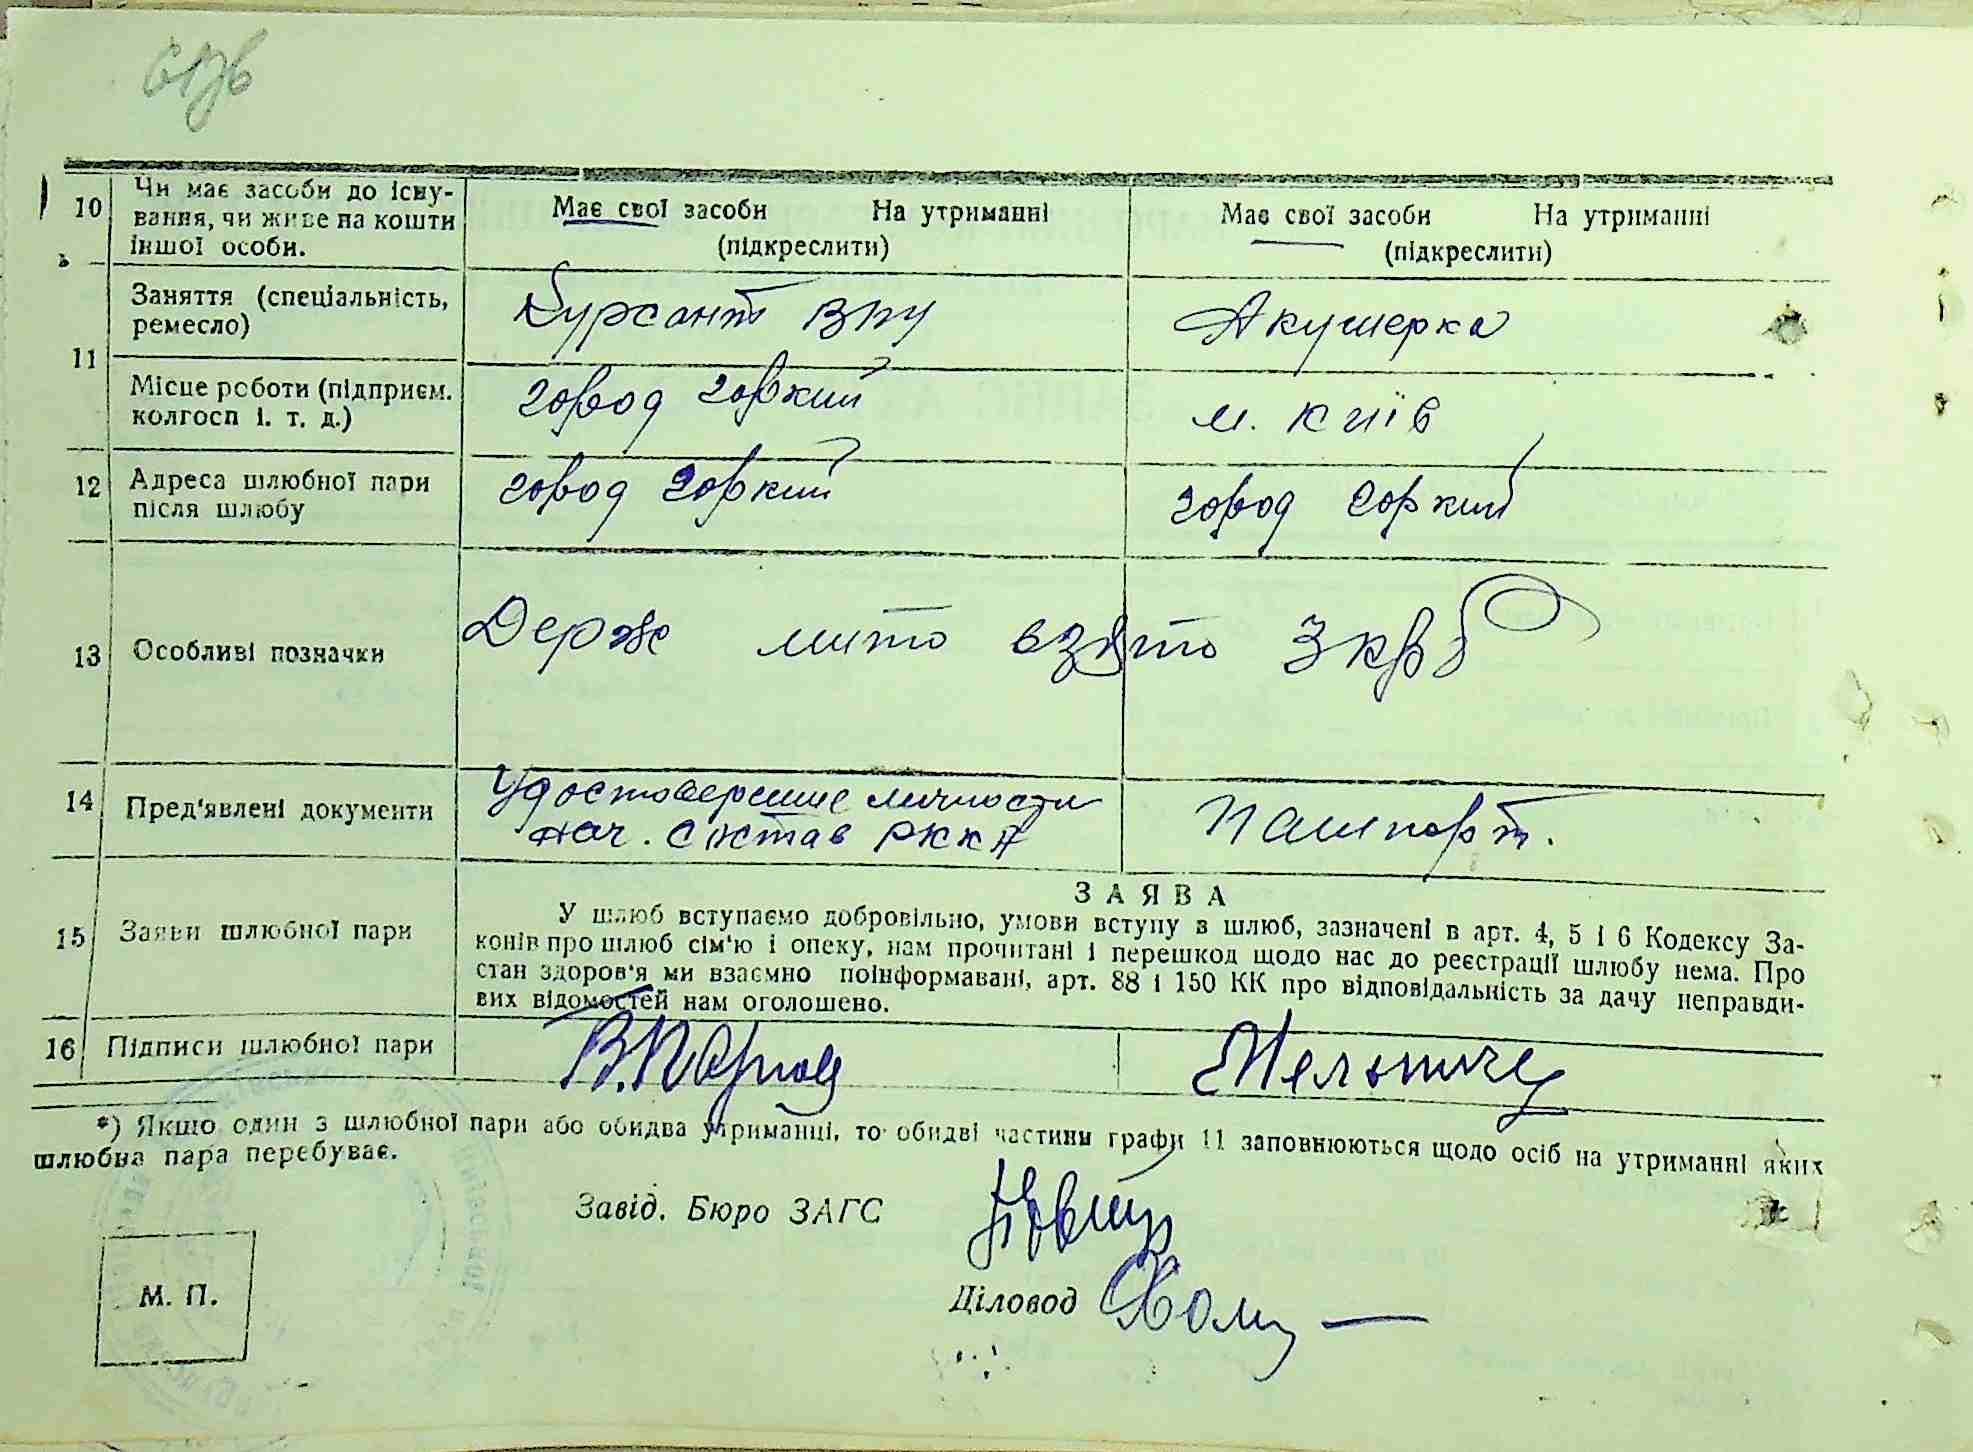 617б
10 Чи має засоби до існу-
вання, чи живе на кошти
іншої особи.
Має свої засоби На утриманні
(підкреслити)
Має свої засоби На утриманні
(підкреслити)
11 Заняття (спеціальність,
ремесло)
Курсант ВПУ
Акушерка
Місце роботи (підприєм.
колгосп і. т. д.)
город Горкий
м. Київ
12 Адреса шлюбної пари
після шлюбу
город Горкий
город Горкий
13 Особливі позначки
Держ мито взято 3 крб
14 Пред'явлені документи
Удостоверение личности
нач. состав РККА
Пашпорт.
15 Заяви шлюбної пари
ЗАЯВА
У шлюб вступаємо добровільно, умови вступу в шлюб, зазначені в арт. 4, 5 і 6 Кодексу За-
конів про шлюб сім'ю і опеку, нам прочитані і перешкод щодо нас до реєстрації шлюбу нема. Про
стан здоров'я ми взаємно поінформавані, арт. 88 і 150 КК про відповідальність за дачу неправди-
вих відомостей нам оголошено.
16 Підписи шлюбної пари
*) Якщо один з шлюбної пари або обидва утриманці, то обидві частини графи 11 заповнюються щодо осіб на утриманні яких
шлюбна пара перебуває.
Завід. Бюро ЗАГС
Діловод
М. П.